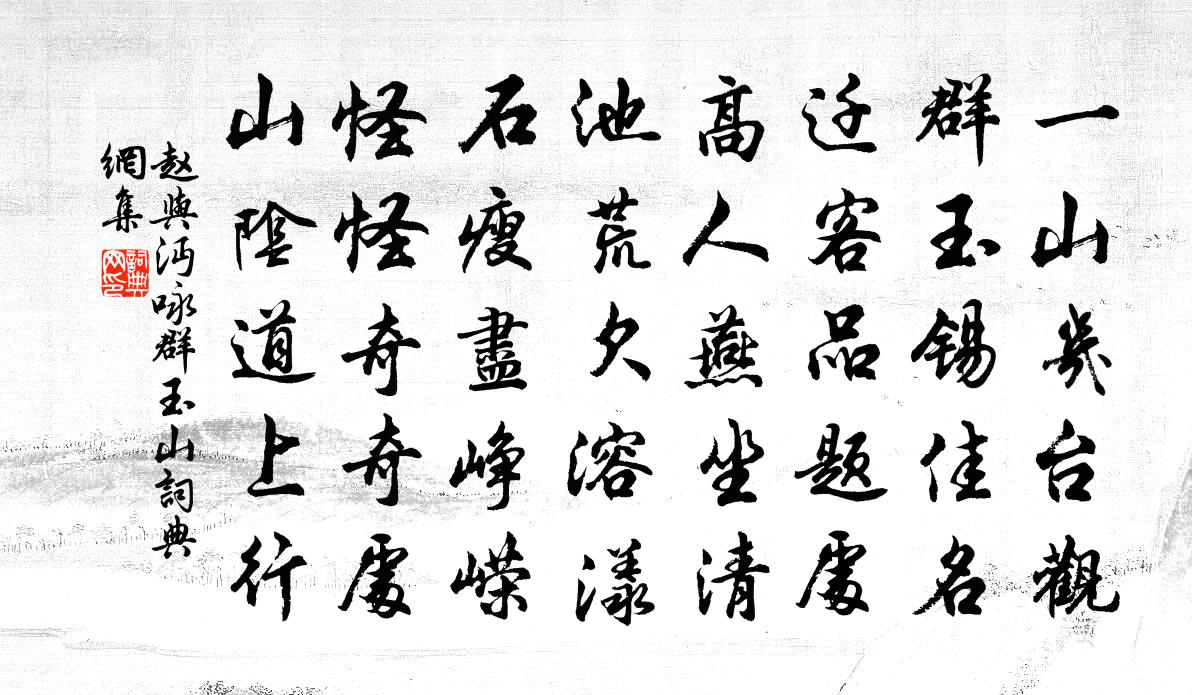 一山幾台觀
群玉錫佳名
迁客品题處
高人燕坐清
池荒久溶漾
石瘦盡崢嶸
怪怪奇奇處
山陰道上行
赵與沔咏群玉山詞典
網集
詞典网印